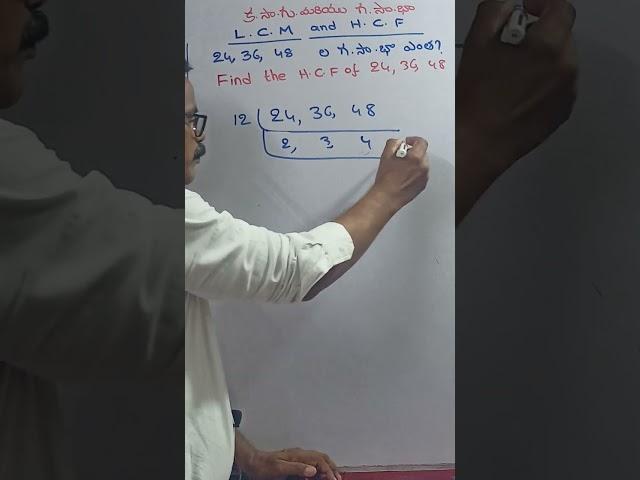 క.సా.గు మరియు గ.సా.భా
L.C.M and H.C.F
24, 36, 48 ల గ.సా.భా ఎంత?
Find the H.C.F of 24, 36, 48
12 24, 36, 48
2, 3, 4